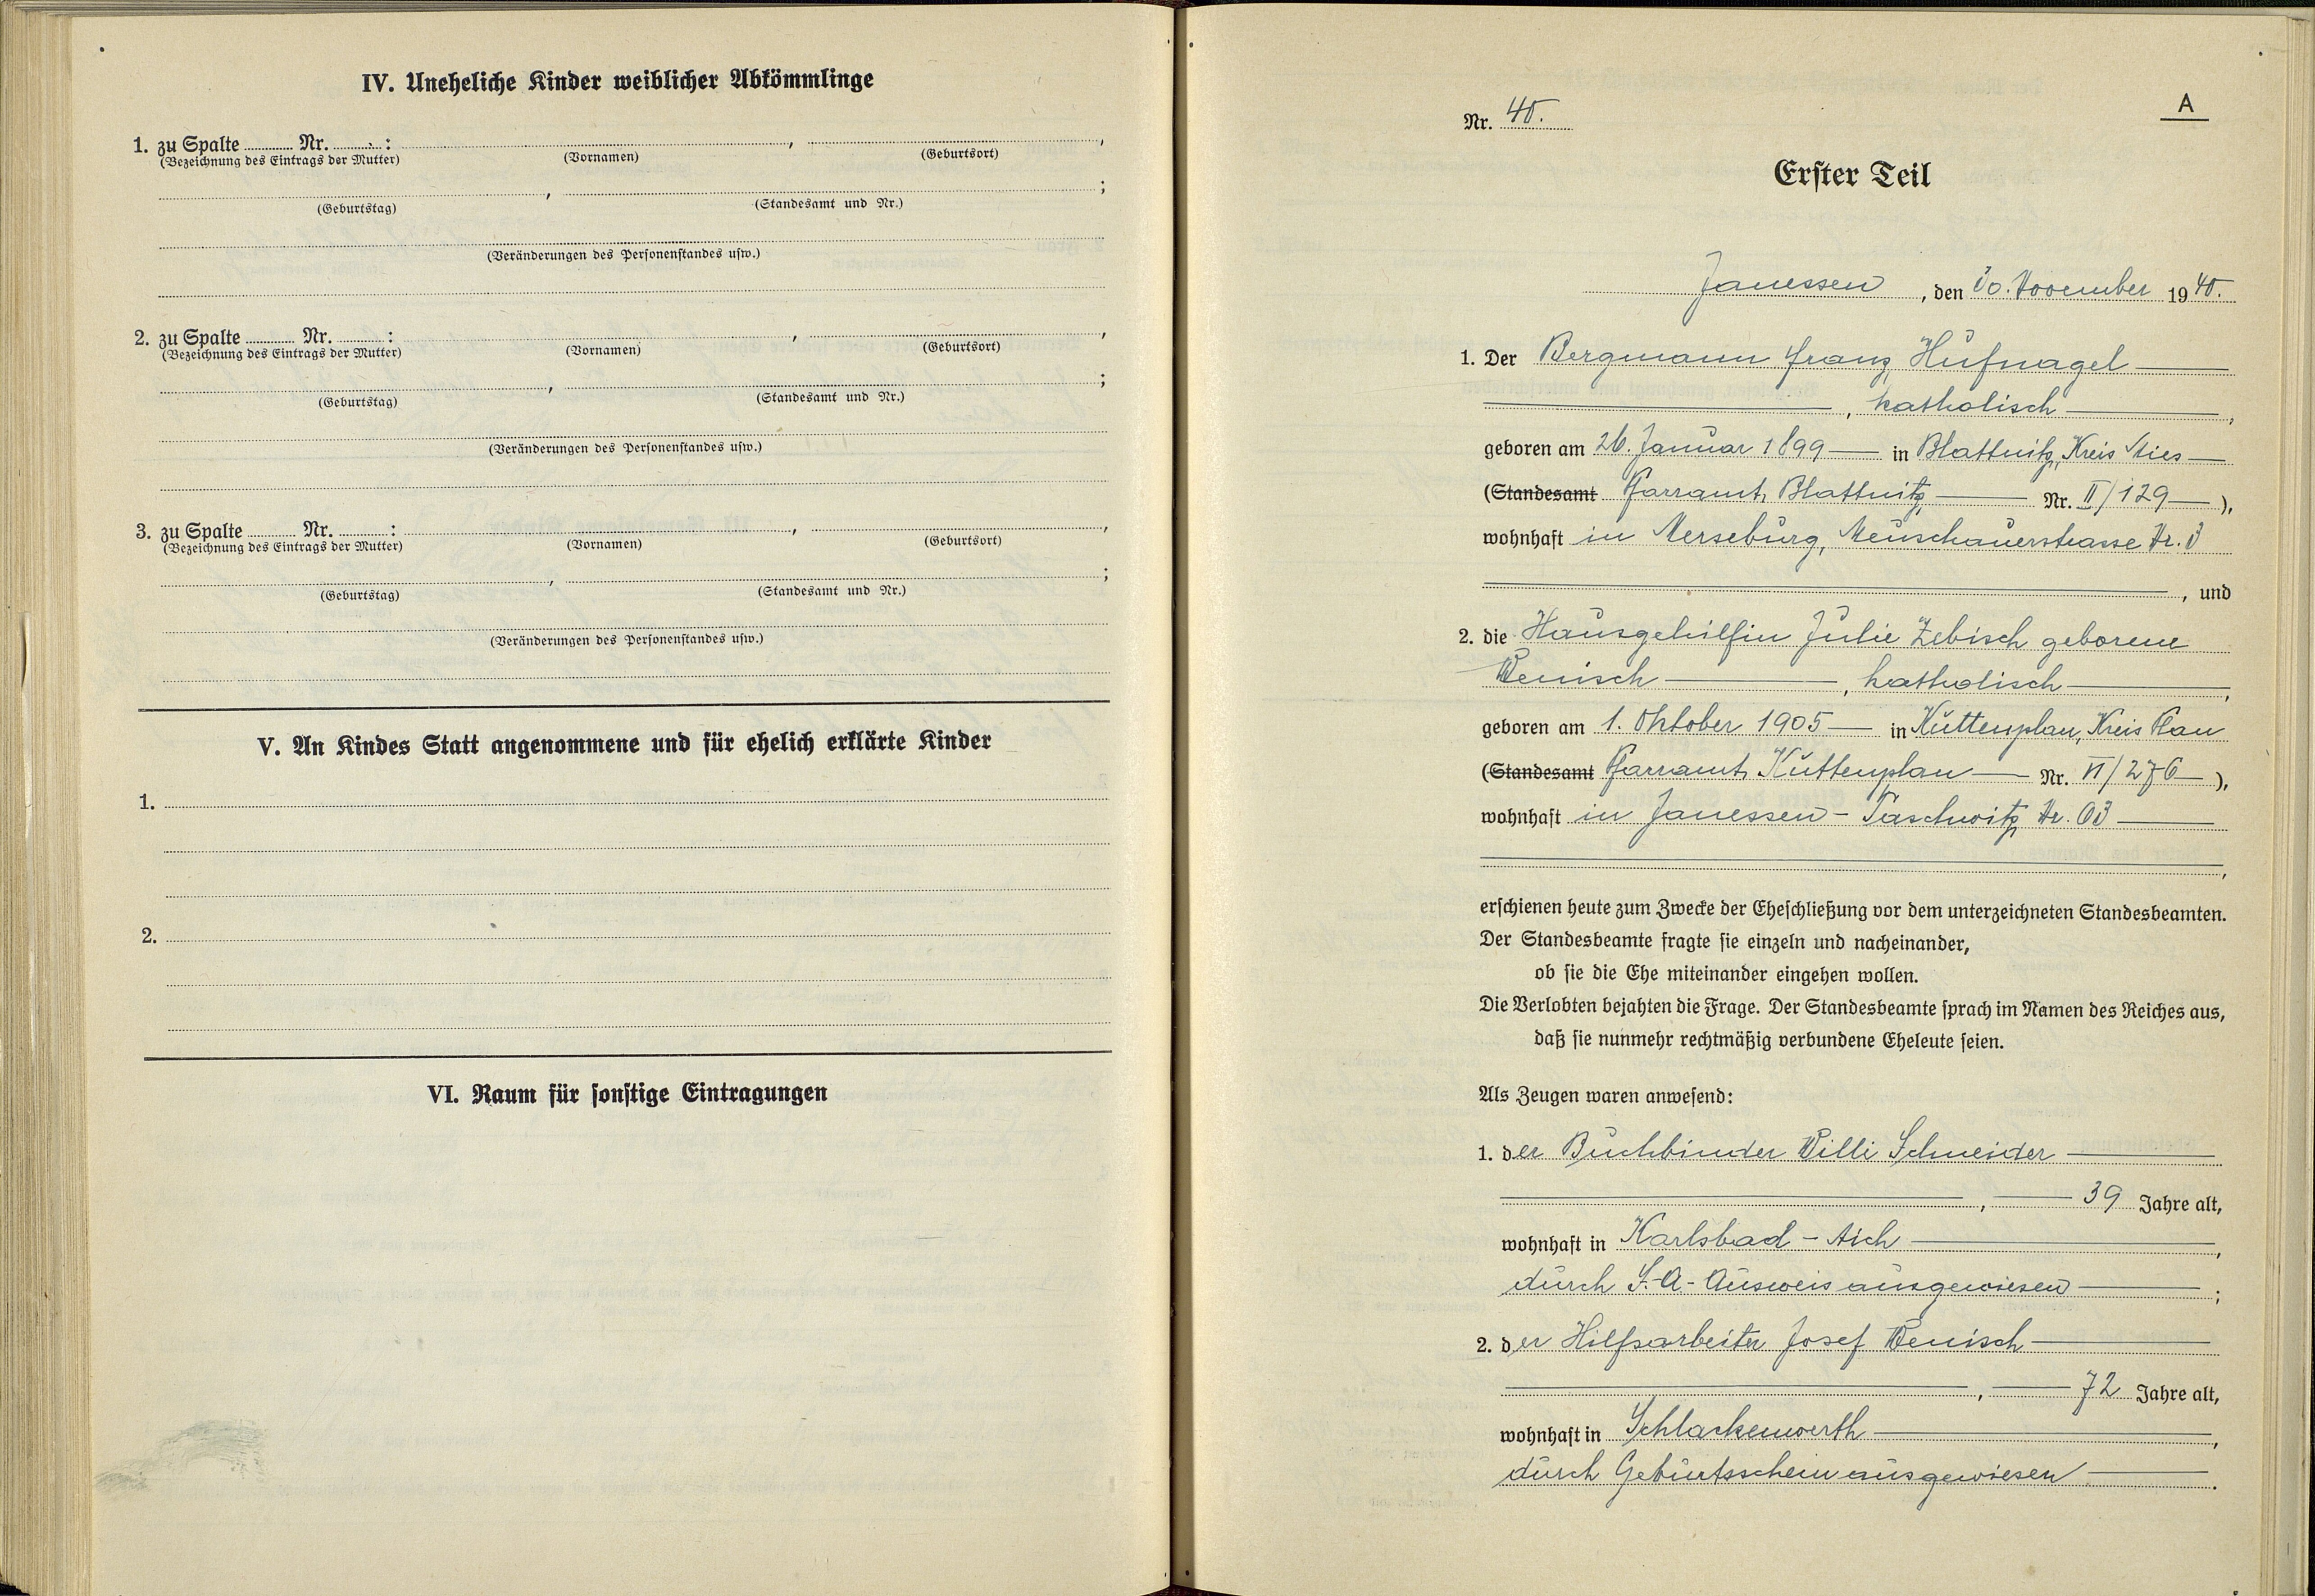 IV. Uneheliche Kinder weiblicher Abkömmlinge
1. zu Spalte ........ Nr. ........ : , ,
(Bezeichnung des Eintrags der Mutter) (Vornamen) (Geburtsort)
, ;
(Geburtstag) (Standesamt und Nr.)
(Veränderungen des Personenstandes usw.)
2. zu Spalte ........ Nr. ........ : , ,
(Bezeichnung des Eintrags der Mutter) (Vornamen) (Geburtsort)
, ;
(Geburtstag) (Standesamt und Nr.)
(Veränderungen des Personenstandes usw.)
3. zu Spalte ........ Nr. ........ : , ,
(Bezeichnung des Eintrags der Mutter) (Vornamen) (Geburtsort)
, ;
(Geburtstag) (Standesamt und Nr.)
(Veränderungen des Personenstandes usw.)
V. An Kindes Statt angenommene und für ehelich erklärte Kinder
1.
2.
VI. Raum für sonstige Eintragungen
A
Nr. 40.
Erster Teil
Janessen, den 30. November 1940.
1. Der Bergmann Franz Hufnagel
, katholisch,
geboren am 26. Januar 1899 in Blattnitz, Kreis Mies
(Standesamt Pfarramt Blattnitz Nr. II/129),
wohnhaft in Merseburg, Meuschauerstrasse Nr. 3
, und
2. die Hausgehilfin Julie Zebisch geborene
Wenisch, katholisch,
geboren am 1. Oktober 1905 in Kuttenplan, Kreis Plan
(Standesamt Pfarramt Kuttenplan Nr. VI/276),
wohnhaft in Janessen - Taschwitz Nr. 63
,
erschienen heute zum Zwecke der Eheschließung vor dem unterzeichneten Standesbeamten.
Der Standesbeamte fragte sie einzeln und nacheinander,
ob sie die Ehe miteinander eingehen wollen.
Die Verlobten bejahten die Frage. Der Standesbeamte sprach im Namen des Reiches aus,
daß sie nunmehr rechtmäßig verbundene Eheleute seien.
Als Zeugen waren anwesend:
1. der Buchbinder Willi Schneider
, 39 Jahre alt,
wohnhaft in Karlsbad - Aich,
durch S.-A.- Ausweis ausgewiesen;
2. der Hilfsarbeiter Josef Wenisch
, 72 Jahre alt,
wohnhaft in Schlackenwerth,
durch Geburtsschein ausgewiesen.